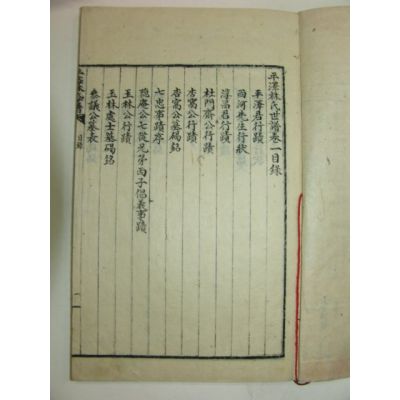 平澤林氏世譜卷一目錄
平澤君行蹟
西河先生行狀
淳昌君行蹟
杜門齋公行蹟
杏窩公行蹟
杏窩公墓碣銘
七忠事蹟序
隱庵公七從兄弟丙子倡義事蹟
玉林公行蹟
玉林處士墓碣銘
參議公墓表
目錄
一